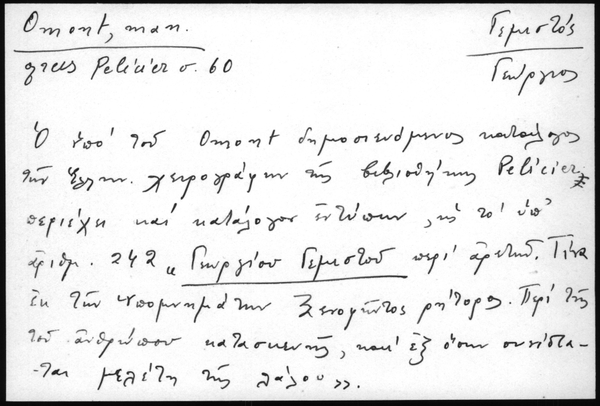 Omont, man.
grecs Pelicier σ. 60
Γεμιστός
Γεώργιος
Ὁ ὑπό τοῦ Omont δημοσιευόμενος κατάλογος
τῶν ἑλλην. χειρογράφων τῆς βιβλιοθήκης Pelicier
περιέχει καί κατάλογον ἐντύπων, εἰς τό ὑπ'
ἀριθμ. 242 „Γεωργίου Γεμιστοῦ περί ἀρετῶν. Τινα
ἐκ τῶν ὑπομνημάτων Ξενοφῶντος ρήτορος. Περί τῆς
τοῦ ἀνθρώπου κατασκευῆς, καί ἐξ ὅσων συνίστα-
-ται μελέτη τῆς